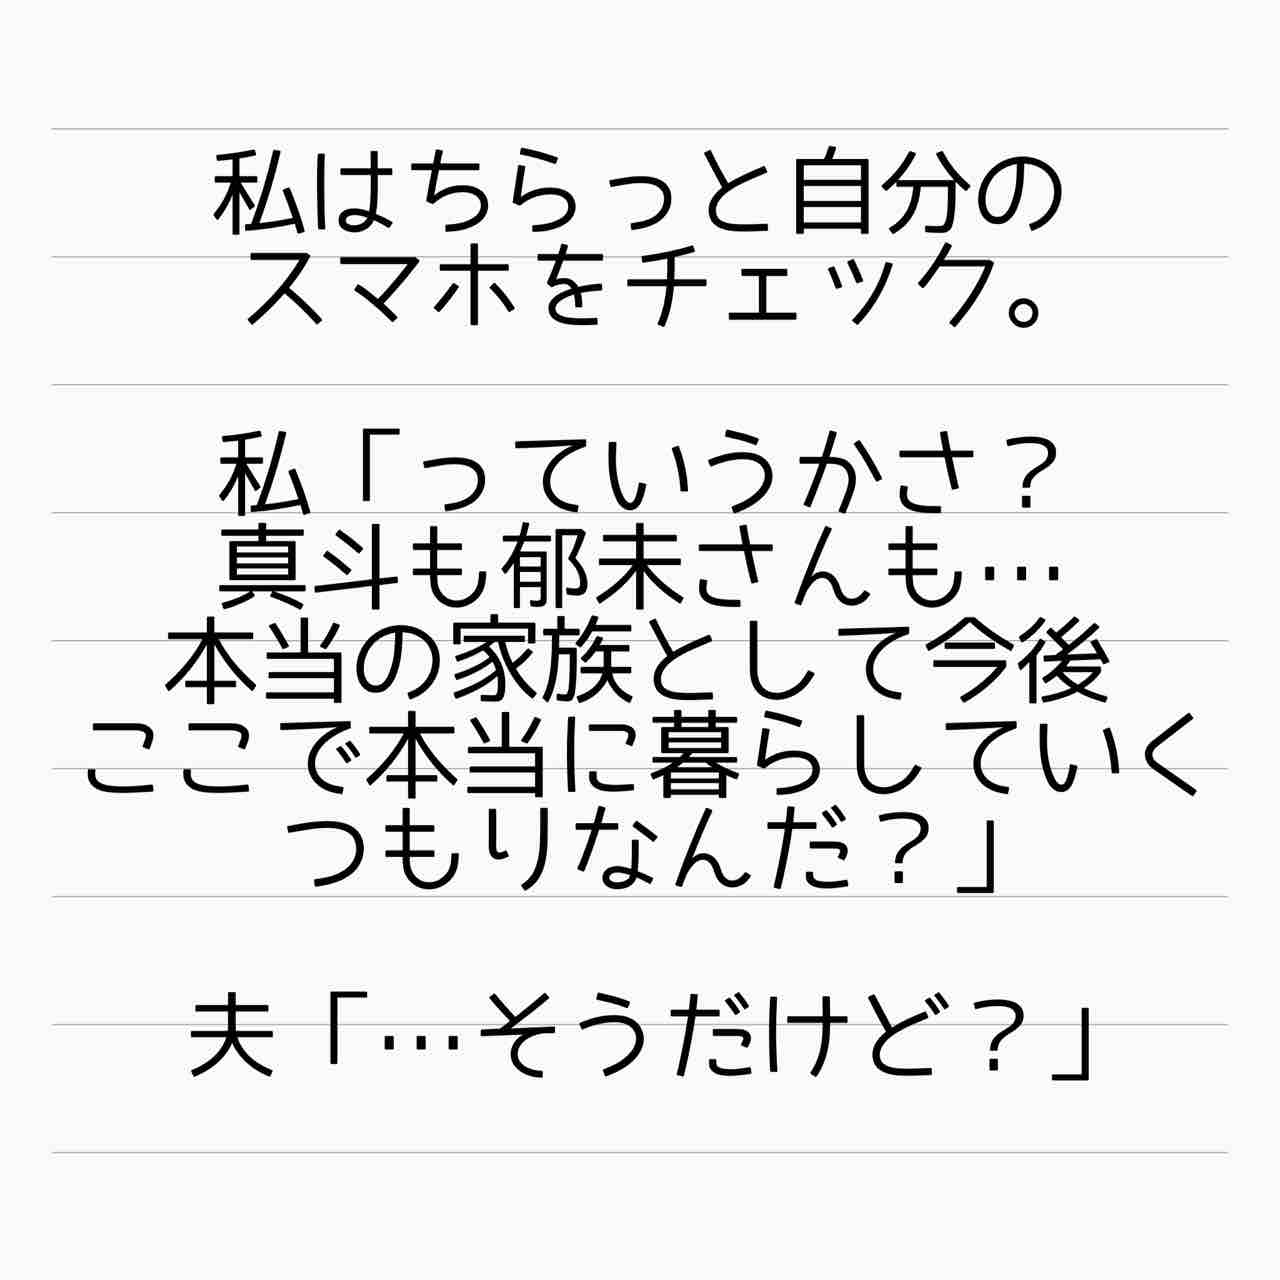 私はちらっと自分の
スマホをチェック。
私「っていうかさ？
真斗も郁未さんも…
本当の家族として今後
ここで本当に暮らしていく
つもりなんだ？」
夫「…そうだけど？」